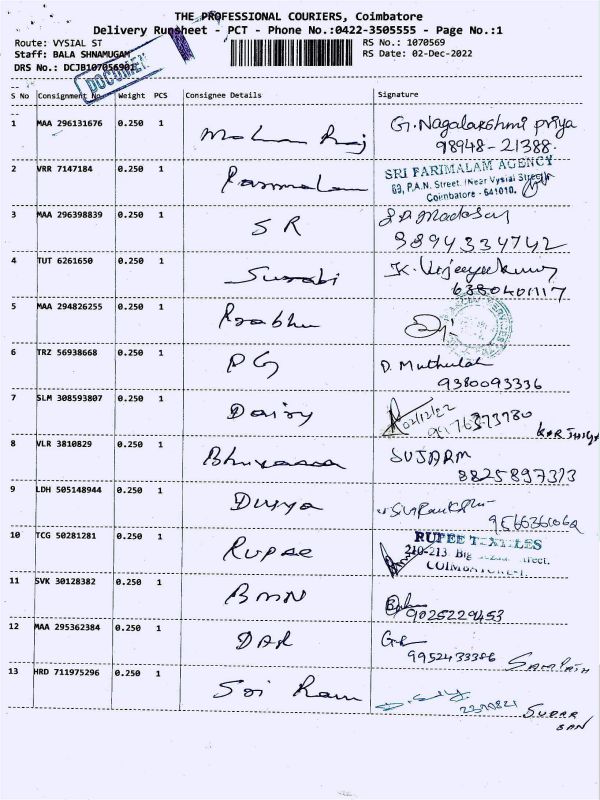 THE PROFESSIONAL COURIERS, Coimbatore
Delivery Runsheet - PCT - Phone No.:0422-3505555 - Page No.:1
Route: VYSIAL ST
RS No.: 1070569
Staff: BALA SHNAMUGAM
RS Date: 02-Dec-2022
DRS No.: DCJB107056901
DOCUMENT
S No Consignment No. Weight PCS Consignee Details Signature
1 MAA 296131676 0.250 1 Mohan Raj G. Nagalakshmi priya
98948-21388.
2 VRR 7147184 0.250 1 Parimalam SRI PARIMALAM AGENCY
69, P.A.N. Street, (Near Vysial Street)
Coimbatore - 641010.
3 MAA 296398839 0.250 1 S R
9894334742
4 TUT 6261650 0.250 1 Surabi K. Vijeyakumar
6380401117
5 MAA 294826255 0.250 1 Prabhu
6 TRZ 56938668 0.250 1 PG D. Muthulak
9380093336
7 SLM 308593807 0.250 1 Dairy 02/12/22
9176373780
8 VLR 3810829 0.250 1 SUJARM
8825897313
9 LDH 505148944 0.250 1 Divya
10 TCG 50281281 0.250 1 Rupee RUPEE TEXTILES
210-213 Big Street.
COIMBATORE-1.
11 SVK 30128382 0.250 1 BMN
9025229453
12 MAA 295362384 0.250 1 DAR
9952433386 SAMPATH
13 HRD 711975296 0.250 1 Sri Ram
2390821 SUDAR
SAN